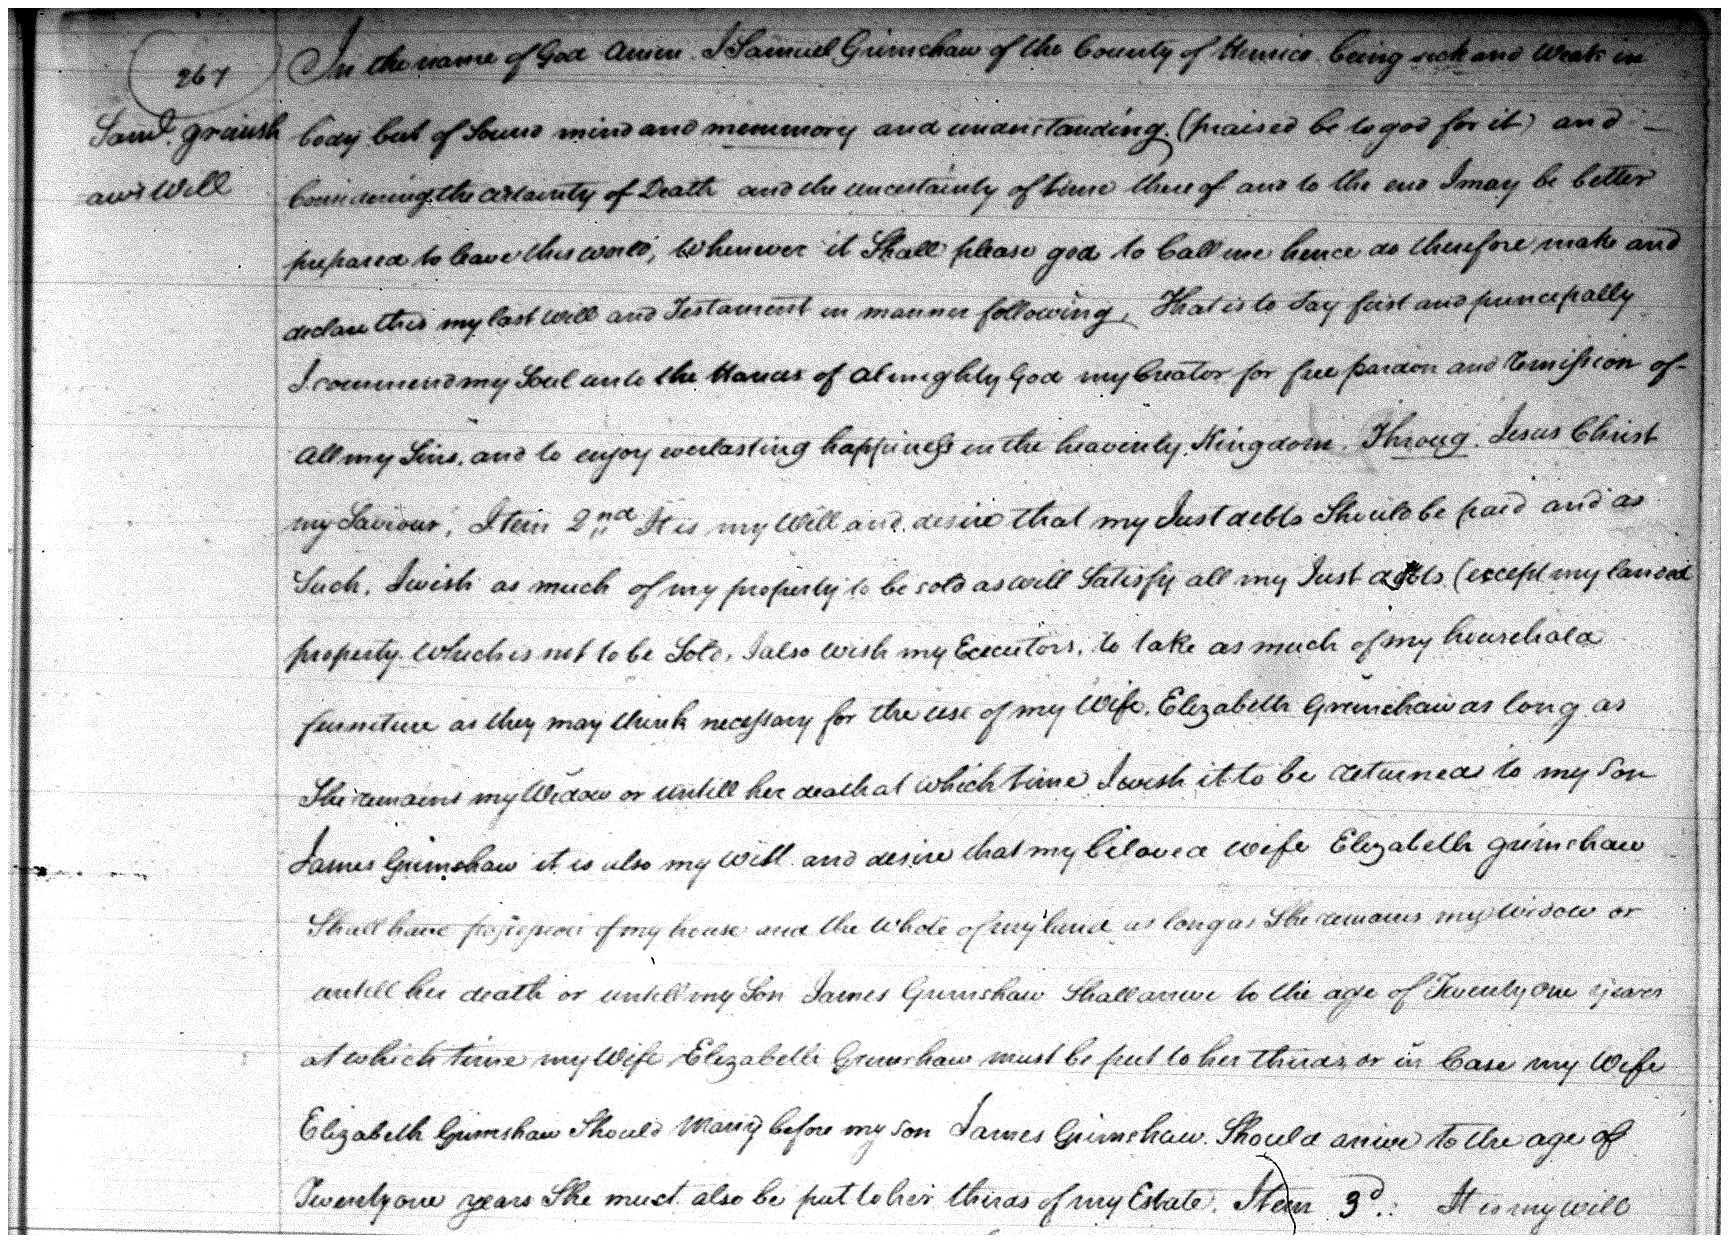 267
In the name of God Amen. I Samuel Grimshaw of the County of Henrico being sick and weak in
Saml. grimsh
body but of Sound mind and memmory and understanding. (praised be to god for it) and —
aw's Will
Considering the certainty of Death and the uncertainty of time thereof and to the end I may be better
prepared to leave this world, whenever it Shall please god to Call me hence do therefore make and
declare this my last will and Testament in manner following. That is to Say first and principally
I commend my Soul unto the Hands of Almighty God my Creator for free pardon and remission of
all my Sins, and to enjoy everlasting happiness in the heavenly Kingdom. Throug. Jesus Christ
my Saviour, Item 2nd It is my Will and desire that my Just debts Should be paid and as
Such, I wish as much of my property to be sold as will Satisfy all my Just debts (except my landed
property which is not to be Sold, I also wish my Executors, to take as much of my household
furniture as they may think necessary for the use of my Wife. Elizabeth Grimshaw as long as
She remains my Widow or untill her death at which time I wish it to be returned to my Son
James Grimshaw it is also my will and desire that my beloved wife Elizabeth grimshaw
Shall have possession of my house and the whole of my land as long as She remains my widow or
untill her death or untill my Son James Grimshaw Shall arrive to the age of Twenty one years
at which time my Wife Elizabeth Grimshaw must be put to her thirds or in Case my Wife
Elizabeth Grimshaw Should Marry before my son James Grimshaw. Should arrive to the age of
Twenty one years She must also be put to her thirds of my Estate. Item 3d.: It is my will